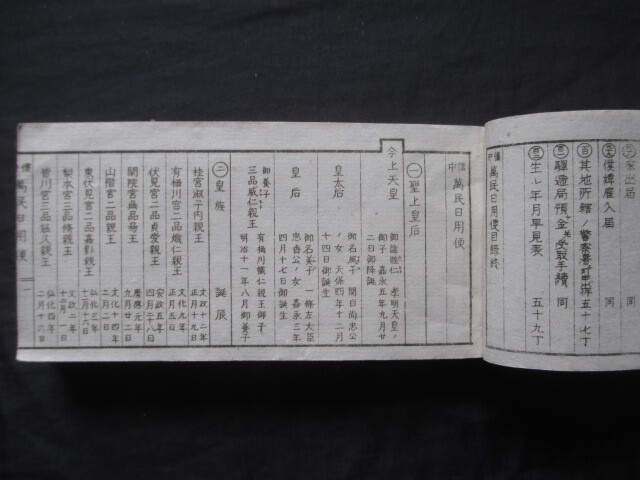 出届
雇入届 同
其地所籍 五十七丁
驛逓局預ケ金受取手續 同
生レ年月早見表 五十九丁
懐中 萬民日用便目録終
懐中 萬民日用便
㊀聖上皇后
今上天皇
御諱睦仁 孝明天皇ノ
御子 嘉永五年九月廿
二日御降誕
皇太后
ノ女 天保四年十二月
十四日御誕生
皇后
御名美子 一條左大臣
忠香公ノ女 嘉永三年
四月十七日御誕生
御養子
三品威仁親王
有栖川幟仁親王御子
明治十一年八月御養子
㊁皇族 誕辰
桂宮淑子内親王
文政十二年
正月十九日
有栖川宮一品幟仁親王
文化九年
正月五日
伏見宮二品貞愛親王
安政五年
四月二十八日
閑院宮無品易王
慶應元年
九月廿二日
山階宮二品親王
文化十四年
二月二日
東伏見宮二品嘉彰親王
弘化三年
正月十六日
梨本宮二品脩親王
文政二年
十二月一日
弘化四年
二月十六日
懐中 萬民日用便 一